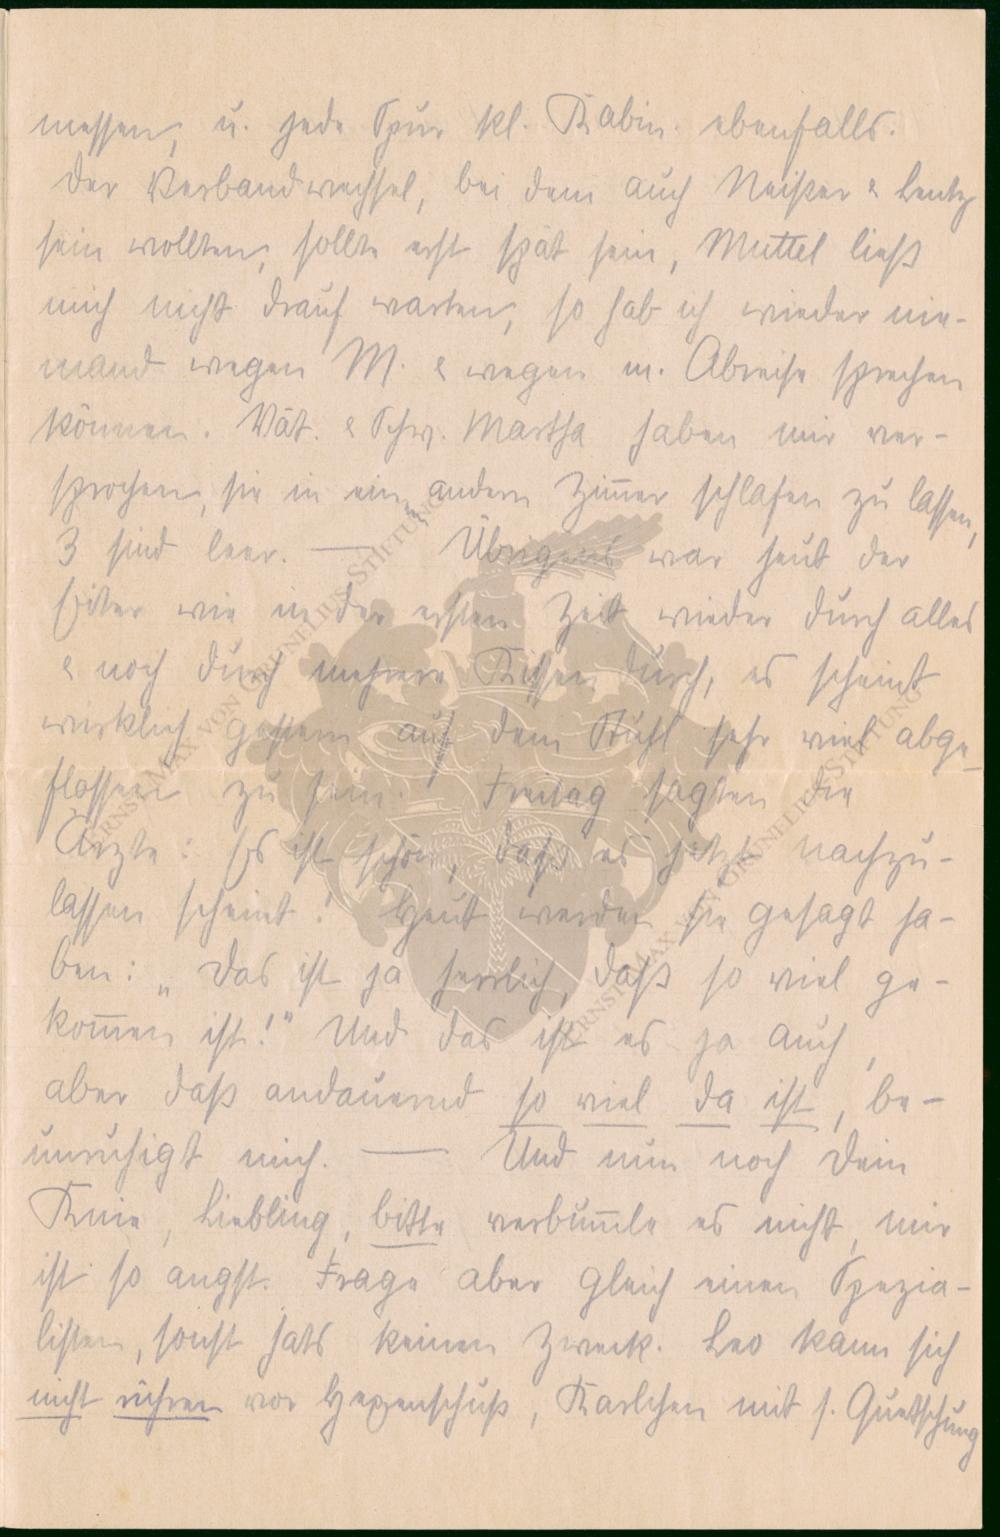 messen, u. jede Spur kl. Kabin. ebenfalls.
Der Verbandwechsel, bei dem auch Neißer & Lentz
sein wollten, sollte erst spät sein, Muttel ließ
mich nicht drauf warten, so hab ich wieder nie-
mand wegen M. & wegen m. Abreise sprechen
können. Vat. & Schw. Martha haben mir ver-
sprochen, sie in ein andern Zimmer schlafen zu lassen,
3 sind leer. — Übrigens war heut der
Eiter wie in der ersten Zeit wieder durch alles
& noch durch mehrere Kissen durch, es scheint
wirklich gestern auf dem Stuhl sehr viel abge-
flossen zu sein. Freitag sagten die
Ärzte: Es ist schön, daß es jetzt nachzu-
lassen scheint! Heut werden sie gesagt ha-
ben: „Das ist ja herrlich, daß so viel ge-
kommen ist!" Und das ist es ja auch,
aber daß andauernd so viel da ist, be-
unruhigt mich. — Und nun noch Dein
Knie, Liebling, bitte verbumle es nicht, mir
ist so angst. Frage aber gleich einen Spezia-
listen, sonst hats keinen Zweck. Leo kann sich
nicht rühren vor Hexenschuß, Karlchen mit s. Quetschung
ERNST MAX VON GRUNELIUS-STIFTUNG
ERNST MAX VON GRUNELIUS-STIFTUNG